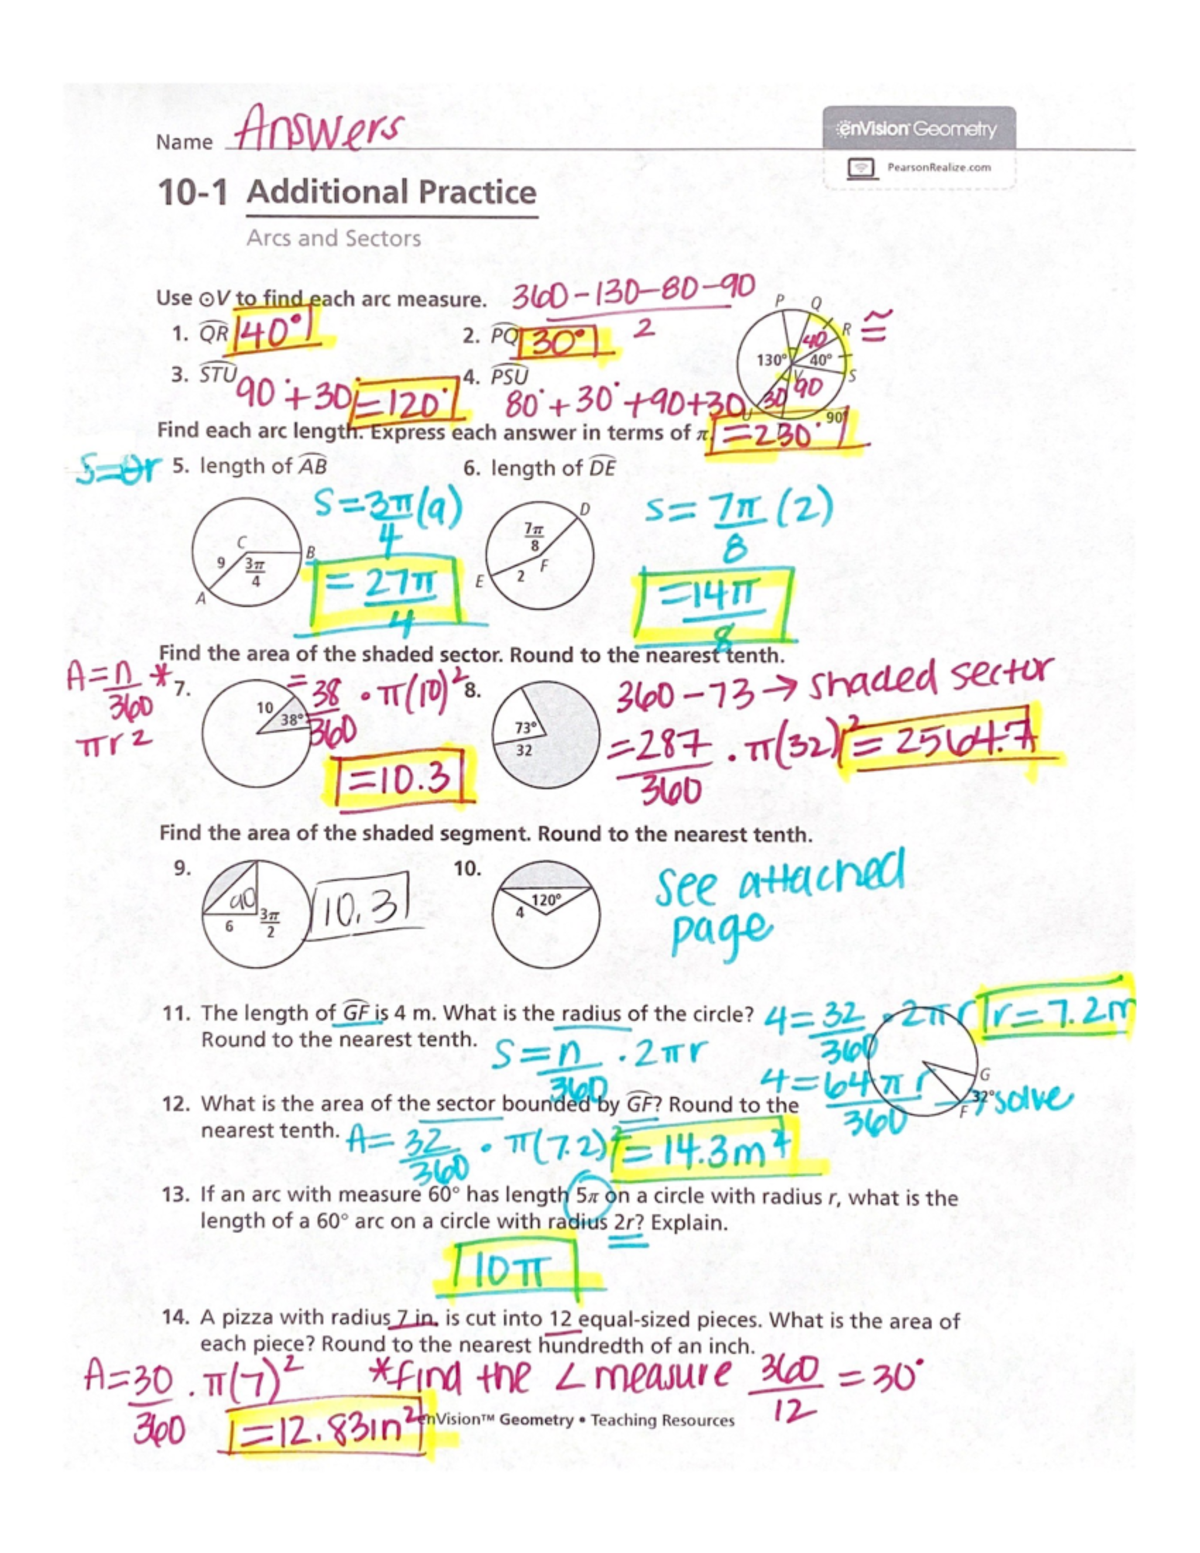 Name Answers
enVision Geometry
PearsonRealize.com
10-1 Additional Practice
Arcs and Sectors
Use ⊙V to find each arc measure. 360-130-80-90
2
1. QR 40°
2. PQ 30°
3. STU 90°+30 =120°
4. PSU 80°+30°+90+30
=230°
P Q R S V U
130° 40 40° 90 30 90°
≅
Find each arc length. Express each answer in terms of π.
S=θr
5. length of AB
6. length of DE
C B 9 3π/4 A
S=3π/4 (9)
=27π/4
D 7π/8 F E 2
S=7π/8 (2)
=14π/8
Find the area of the shaded sector. Round to the nearest tenth.
A=n/360 * πr2
7.
10 38°
=38/360 • π(10)²
=10.3
8.
73° 32
360-73→ shaded sector
=287/360 . π(32)² = 2564.7
Find the area of the shaded segment. Round to the nearest tenth.
9.
90 6 3π/2
10.3
10.
120° 4
See attached
page
11. The length of GF is 4 m. What is the radius of the circle? 4=32/360 • 2πr r=7.2m
Round to the nearest tenth. S=n/360 · 2πr
4=64πr/360 → solve
G 32° F
12. What is the area of the sector bounded by GF? Round to the
nearest tenth. A=32/360 • π(7.2)² =14.3m²
13. If an arc with measure 60° has length 5π on a circle with radius r, what is the
length of a 60° arc on a circle with radius 2r? Explain.
10π
14. A pizza with radius 7 in. is cut into 12 equal-sized pieces. What is the area of
each piece? Round to the nearest hundredth of an inch.
A=30/360 . π(7)² *find the ∠ measure 360/12 = 30°
=12.83in²
enVision™ Geometry • Teaching Resources